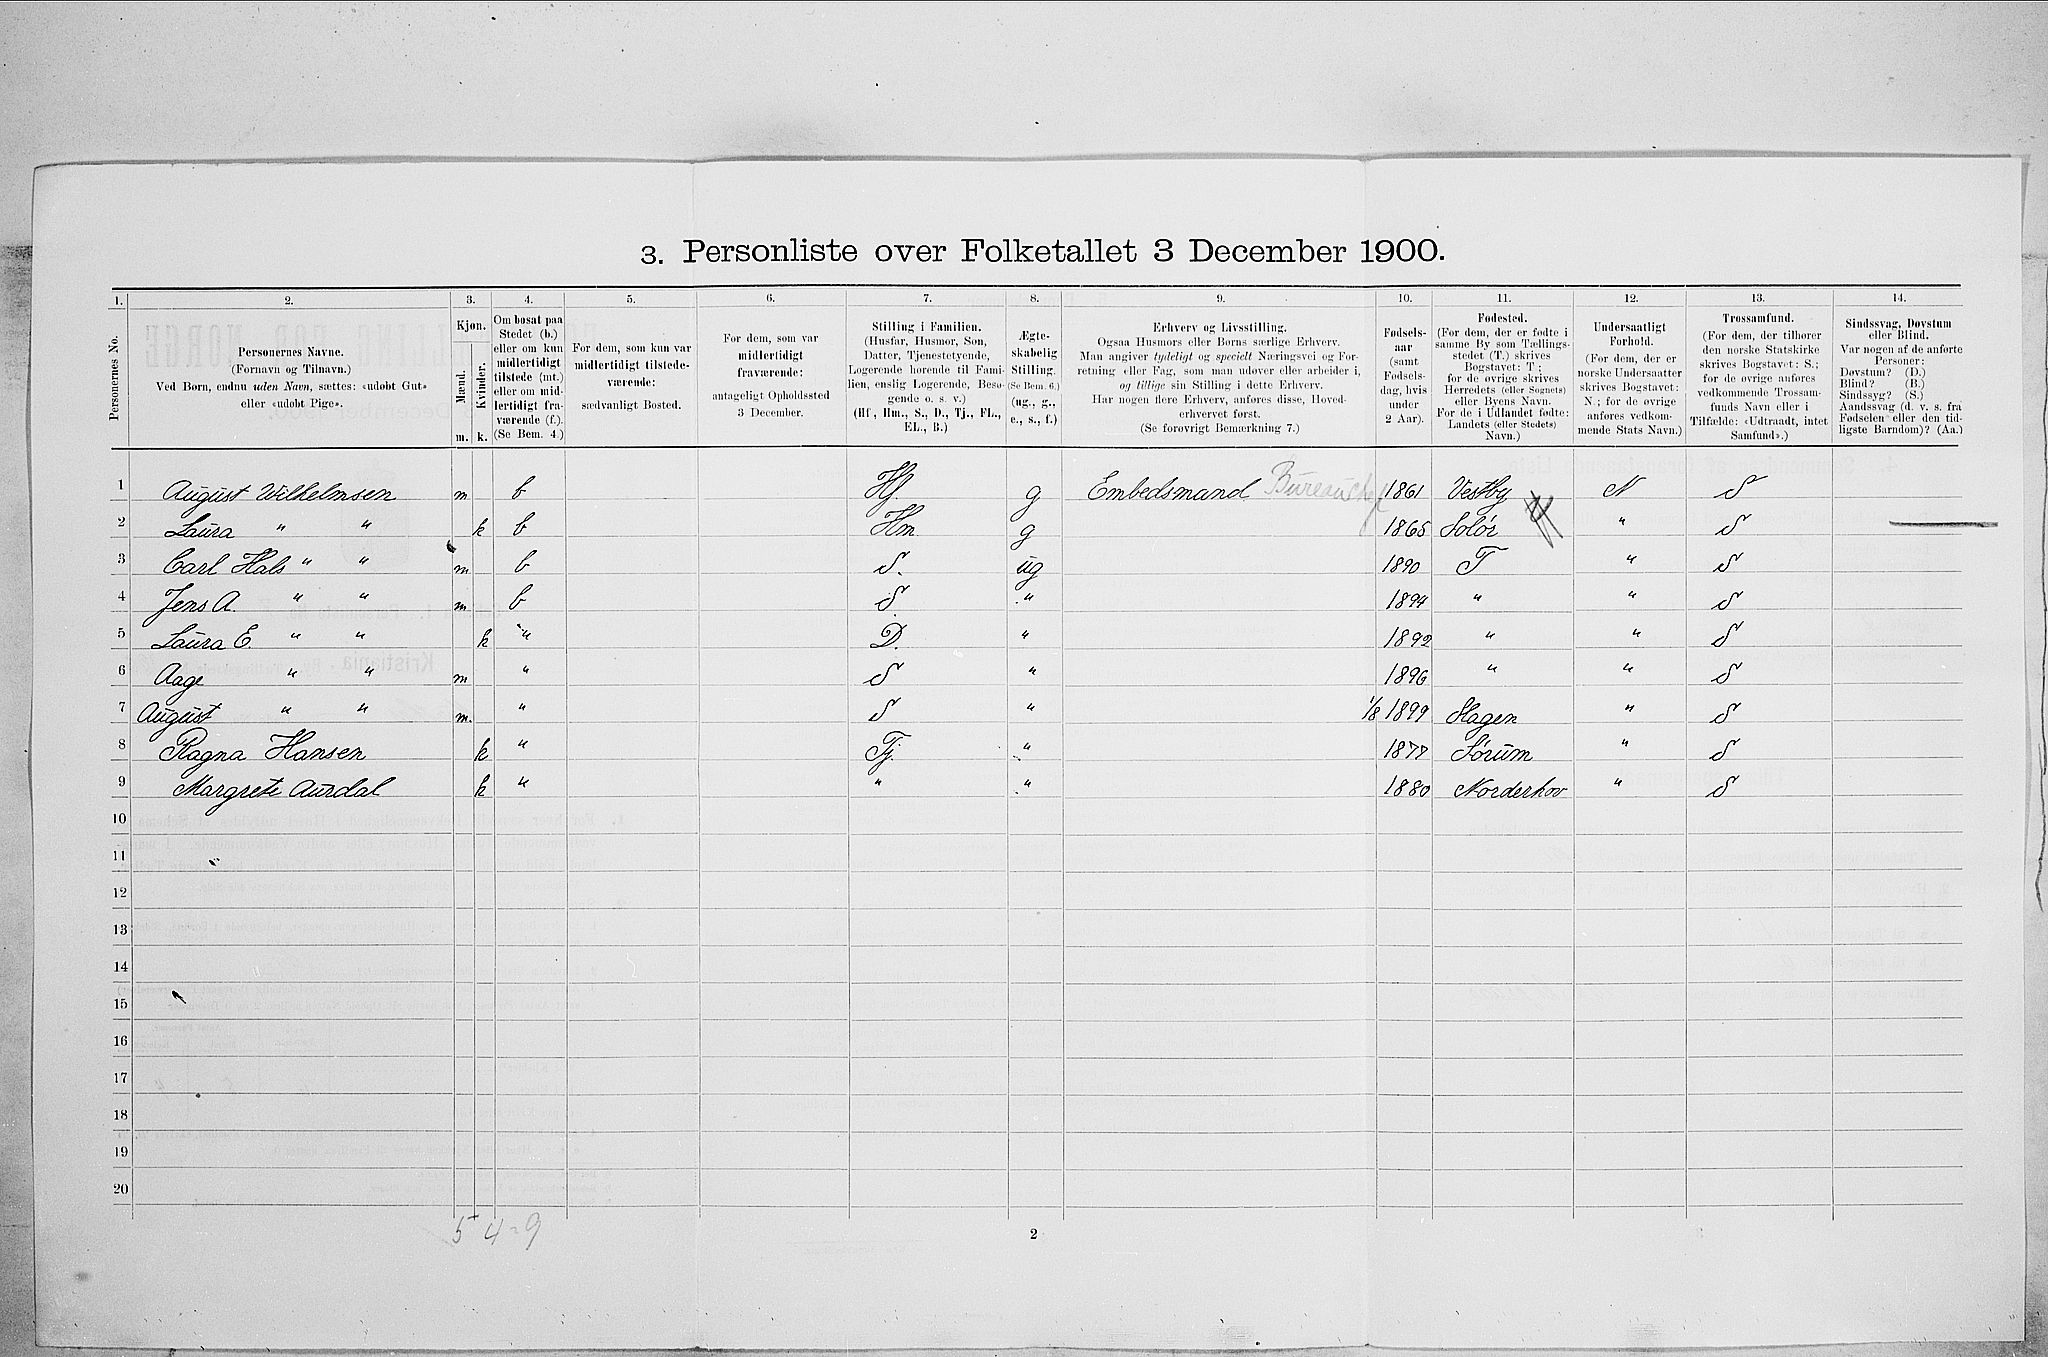 3. Personliste over Folketallet 3 December 1900.
1. 2. 3. 4. 5. 6. 7. 8. 9. 10. 11. 12. 13. 14.
Personernes No.
Personernes Navne.
(Fornavn og Tilnavn.)
Ved Børn, endnu uden Navn, sættes: «udøbt Gut»
eller «udøbt Pige».
Kjøn.
Mænd.
Kvinder.
m. k.
Om bosat paa
Stedet (b.)
eller om kun
midlertidigt
tilstede (mt.)
eller om mid-
lertidigt fra-
værende (f.).
(Se Bem. 4.)
For dem, som kun var
midlertidigt tilstede-
værende:
sædvanligt Bosted.
For dem, som var
midlertidigt
fraværende:
antageligt Opholdssted
3 December.
Stilling i Familien.
(Husfar, Husmor, Søn,
Datter, Tjenestetyende,
Logerende hørende til Fami-
lien, enslig Logerende, Besø-
gende o. s. v.)
(Hf, Hm., S., D., Tj., FL.,
EL., B.)
Ægte-
skabelig
Stilling.
(Se Bem. 6.)
(ug., g.,
e., s., f.)
Erhverv og Livsstilling.
Ogsaa Husmors eller Børns særlige Erhverv.
Man angiver tydeligt og specielt Næringsvei og For-
retning eller Fag, som man udøver eller arbeider i,
og tillige sin Stilling i dette Erhverv.
Har nogen flere Erhverv, anføres disse, Hoved-
erhvervet først.
(Se forøvrigt Bemærkning 7.)
Fødsels-
aar
(samt
Fødsels-
dag, hvis
under
2 Aar).
Fødested.
(For dem, der er fødte i
samme By som Tællings-
stedet (T.) skrives
Bogstavet: T;
for de øvrige skrives
Herredets (eller Sognets)
eller Byens Navn.
For de i Udlandet fødte:
Landets (eller Stedets)
Navn.)
Undersaatligt
Forhold.
(For dem, der er
norske Undersaatter
skrives Bogstavet:
N.; for de øvrige
anføres vedkom-
mende Stats Navn.)
Trossamfund.
(For dem, der tilhører
den norske Statskirke
skrives Bogstavet: S.;
for de øvrige anføres
vedkommende Trossam-
funds Navn eller i
Tilfælde: «Udtraadt, intet
Samfund».)
Sindssvag, Døvstum
eller Blind.
Var nogen af de anførte
Personer:
Døvstum? (D.)
Blind? (B.)
Sindssyg? (S.)
Aandssvag (d. v. s. fra
Fødselen eller den tid-
ligste Barndom)? (Aa.)
1 August Wilhelmsen m b Hf. g Embedsmand Bureauchef 1861 Vestby N S
2 Laura " " k b Hm g 1865 Solør " S
3 Carl Hals " " m b S. ug 1890 T " S
4 Jens A. " " m b S. " 1894 " " S
5 Laura E. " " k " D. " 1892 " " S
6 Aage " " m " S " 1896 " " S
7 August " " m. " S " 1/8 1899 Hagen " S
8 Ragna Hansen k " Tj. " 1877 Sørum " S
9 Margrete Aurdal k " " " 1880 Norderhov " S
10
11
12
13
14
15
16
17
18
19
20
5 4 = 9
2